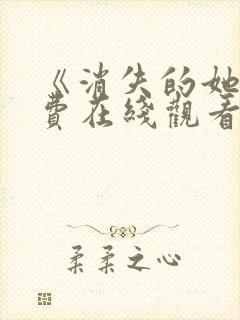 《消失的她
費在綫觀看
柔柔之心